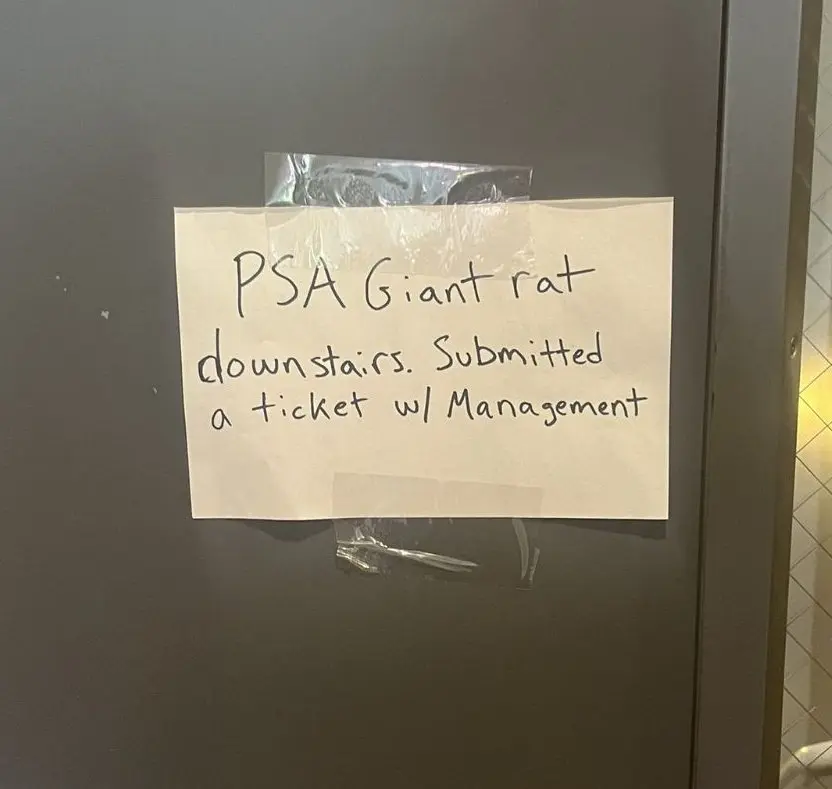 PSA Giant rat
downstairs. Submitted
a ticket w/ Management